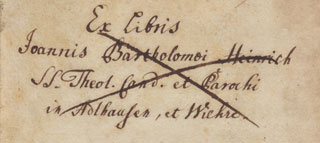 Ex Libris
Joannis Bartholomei Heinrich
SS. Theol. Cand. et Parochi
in Adlhausen, et Wichre.